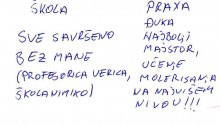 ŠKOLA
SVE SAVRŠENO
BEZ MANE
(PROFESORICA VERICA,
ŠKOLANIMIKO)
PRAXA
ĐUKA
NAJBOLJI
MAJSTOR,
UČEMO
MOLERISANJA
NA NAJVIŠEM
NIVOU!!!